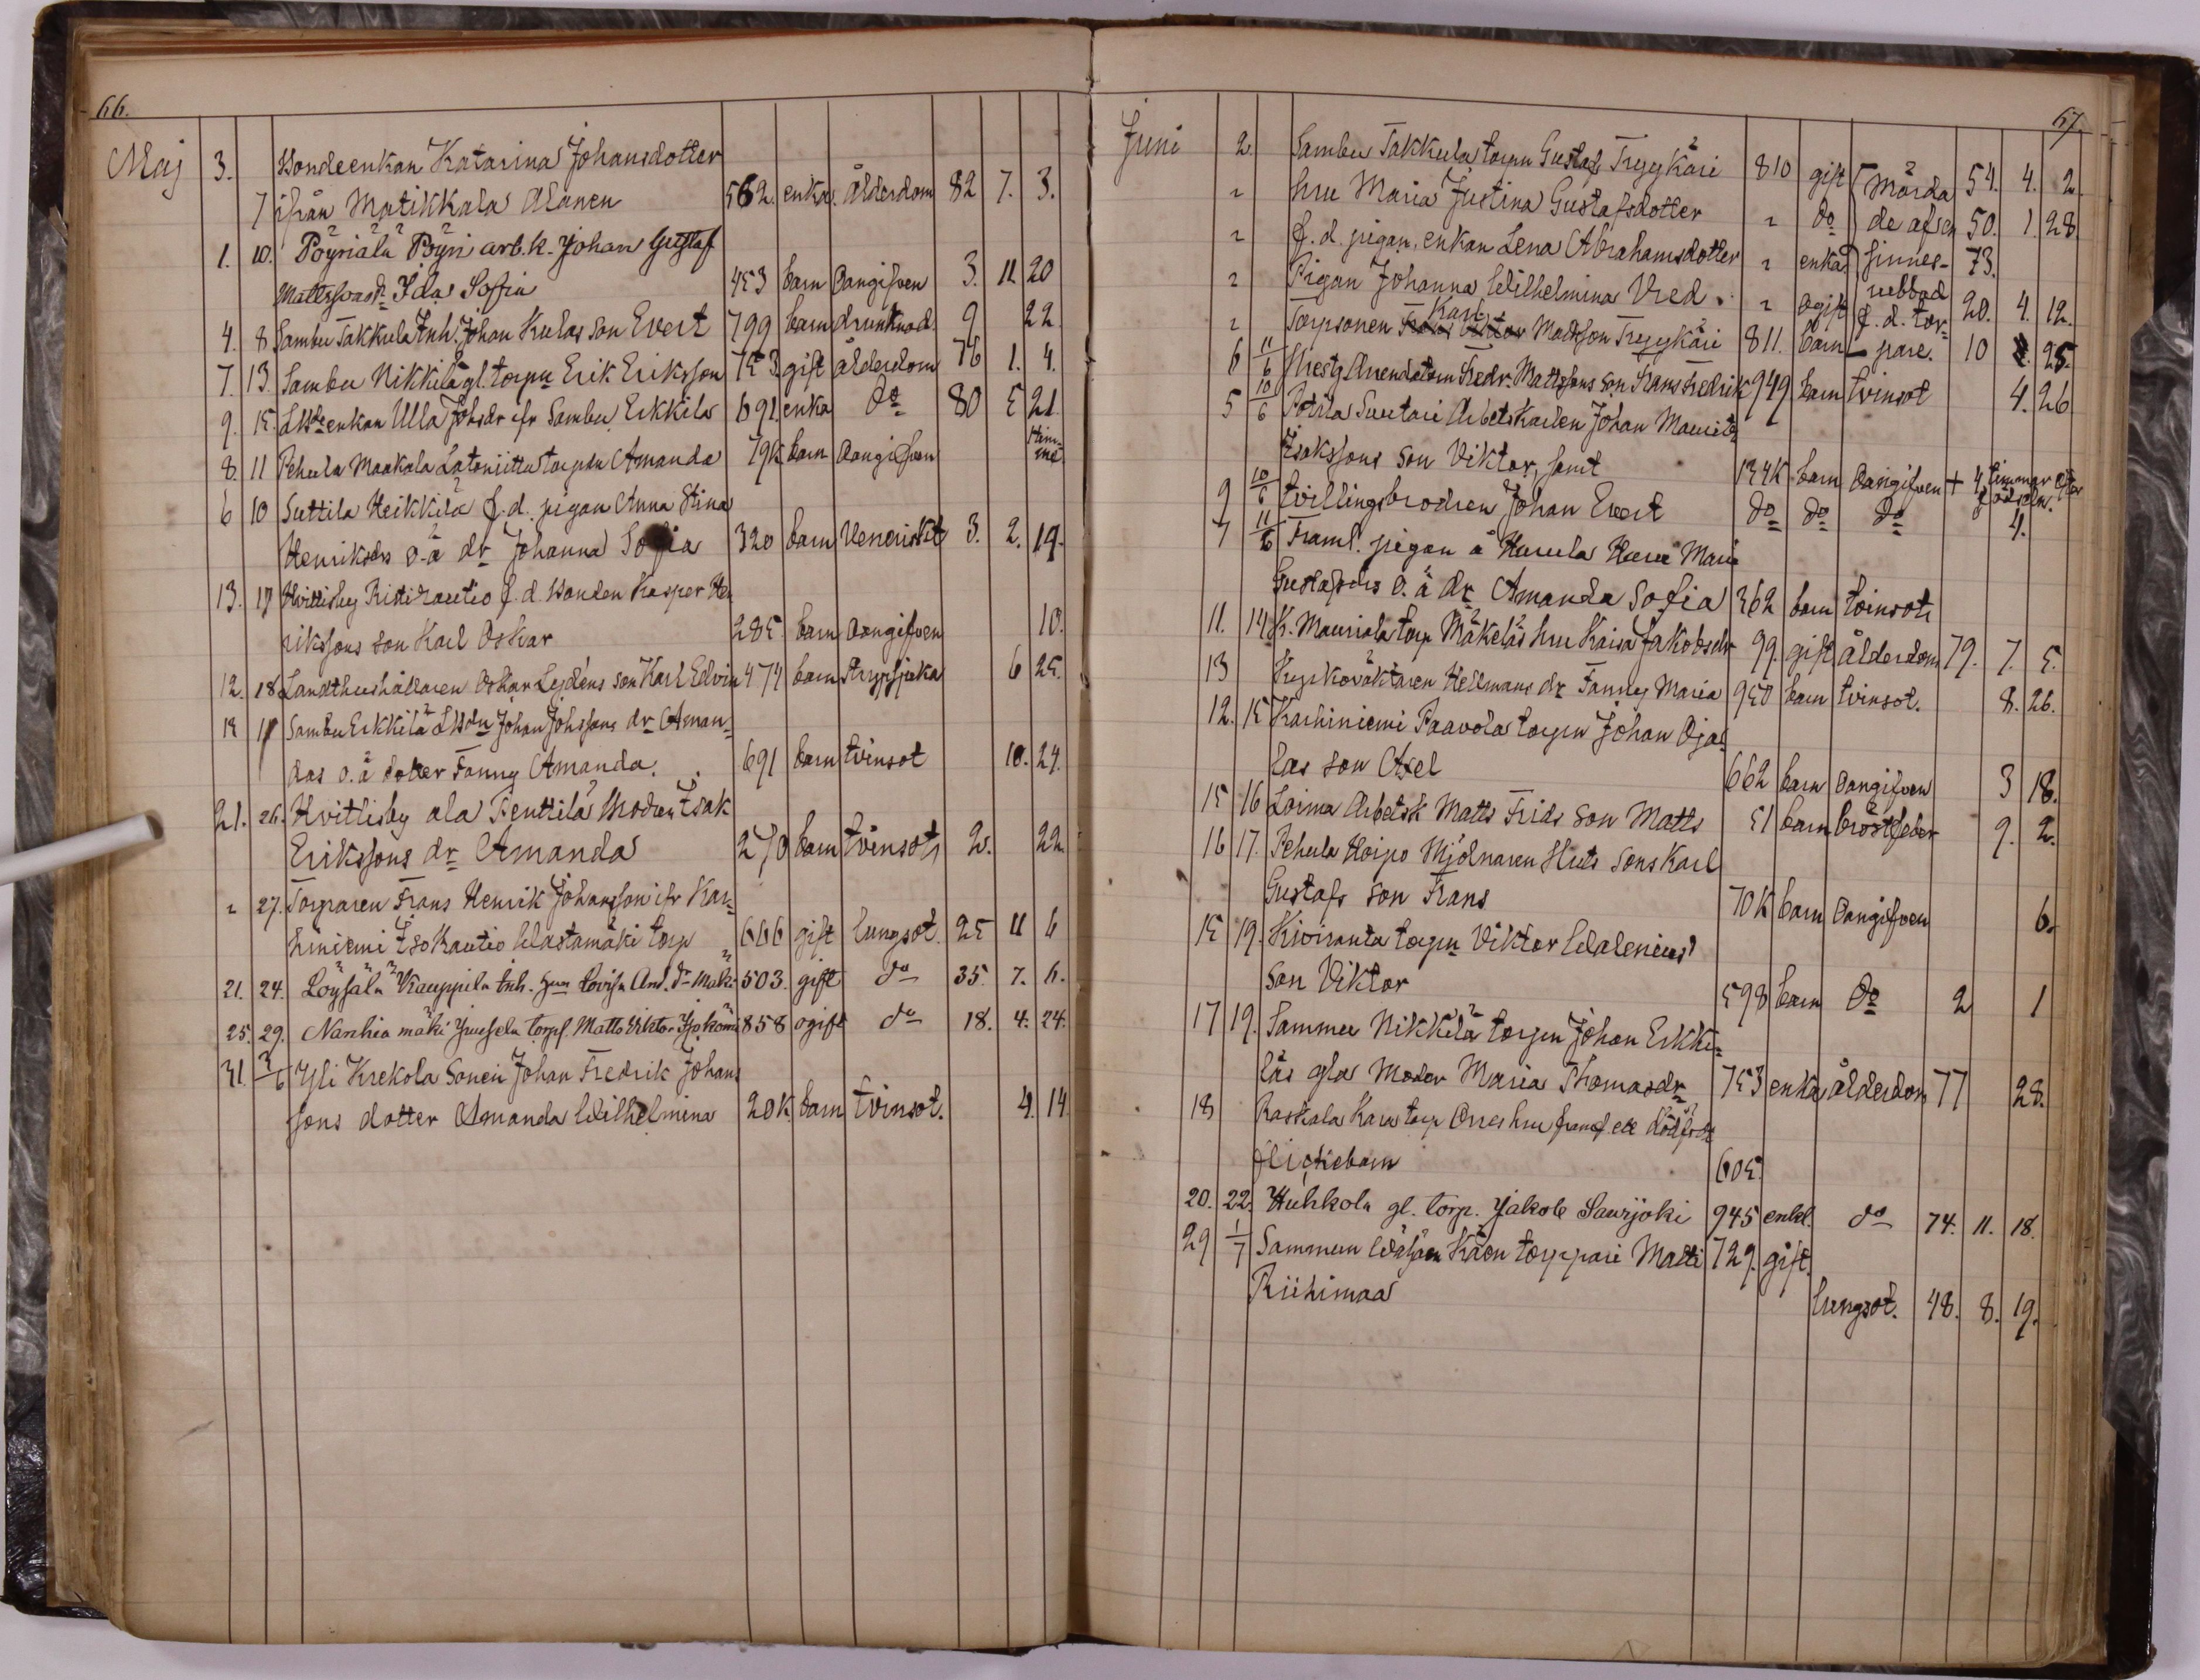 66.
Maj 3. Bondeenkan Katarina Johansdotter
7 ifrån Matikkala Alanen 562. enka. ålderdom 82 7. 3.
1. 10. Pöyriälä Pöyri arb.k. Johan Gustaf
Mattssons dr Ida Sofia 453 barn Oangifven 3. 11 20
4. 8 Sambu Takkula Inh. Johan Kulas son Evert 799 barn drunknad. 9 22
7. 13. Sambu Nikkilä gl. torpn Erik Eriksson 753. gift ålderdom 76 1. 4.
9. 15. enkan Ulla Johsdr ifr Sambu Erkkilä 691. enka do 80 5 21
8. 11 Pehula Maakala Latoniittu torpdr Amanda 79K barn Oangifven timme
6 10 Suttila Heikkilä f.d. pigan Anna Stina
Henriksdrs o.ä dr Johanna Sofia 320 barn Veneriskt 3. 2. 19.
13. 17 Hvittisby Ristirautio f.d. Bonden Kasper Hen
rikssons son Karl Oskar 285. barn Oangifven 10.
12. 18 Landthushållaren Oskar Lydéns son Karl Edvin 474 barn strypsjuka 6 25.
Sambu Erkkilä Johan Johssons dr Aman=
das o.ä dotter Fanny Amanda. 691 barn tvinsot 10. 24.
21. 26. Hvittisby ala Penttilä Isak
Erikssons dr Amanda 270 barn tvinsot 2. 22
27. Torparen Frans Henrik Johansson ifr Kar=
hiniemi Iso Rautio Wastamäki torp 666 gift lungsot. 25 11 6
21. 24. Löysälä Kauppila Inh. hun Lovisa And. dr Mäki 503. gift do 35. 7. 6.
25. 29. Nanhia mäki Jussila torps. Matts Viktor 858 ogift do 18. 4. 24.
31. 3/6 Yli Krekola Sonen Johan Fredrik Johans
sons dotter Amanda Wilhelmina 20K. barn tvinsot. 4. 14.
67.
Juni 2 Sambu Takkula torpn Gustaf Tryykäri 810 gift Mörda 54. 4. 2.
hru Maria Justina Gustafsdotter do de af en 50. 1. 28
f.d. pigan, enkan Lena Abrahamsdotter enka sinnes- 73.
Pigan Johanna Wilhelmina Vred. ogift rubbad 20. 4. 12.
Karl
Torpsonen Mattsson Tryykäri 811. barn f.d. tor-pare. 10 25.
6 11/6 Arrendatorn Fredr. Mattssons son Frans Fredrik 949 barn tvinsot 4. 26
5 10/6 Potila Suutari Arbetskarlen Johan Maurits
Isakssons son Viktor, samt 134K barn Oangifven + 4 timmar efter födseln.
9 10/6 tvillingsbrodren Johan Evert do do do 4.
7 11/6 Framl. pigan å Hurula Maria
Gustafsdrs o.ä dr Amanda Sofia 362 barn tvinsot
11. 14 K. Mauriala torp Mäkeläs hru Kaisa Jakobsdr 99. gift ålderdom 79. 7. 5.
13 Kyrkoväktaren Hellmans dr Fanny Maria 950 barn tvinsot. 8. 26.
12. 15 Karhiniemi Paavola torpn Johan Oja=
las son Axel 662 barn Oangifven 3 18.
15 16 Loima Arbetsk Matts Frids son Matts 51 barn bröstfeber 9. 2.
16 17. Pehula Hoipo Mjölnaren Huts sons Karl
Gustafs son Frans 70K barn Oangifven 6.
15 19. Kiviranta torpn Viktor Walenius'
son Viktor 598 barn do 2 1
17 19. Sammu Nikkilä torpn Johan Erkki=
läs gla Moder Maria Thomasdr 753 enka ålderdom 77 28.
18 Raskala Kara torp hru framf. ett dödfödt
flickebarn 605.
20. 22. Huhkola gl. torp. Jakob Saurijoki 945 enkl. do 74. 11. 18.
29 1/7 Sammun Wähän Käen torppari Matti 729. gift.
Riihimaa lungsot. 48. 8. 19.